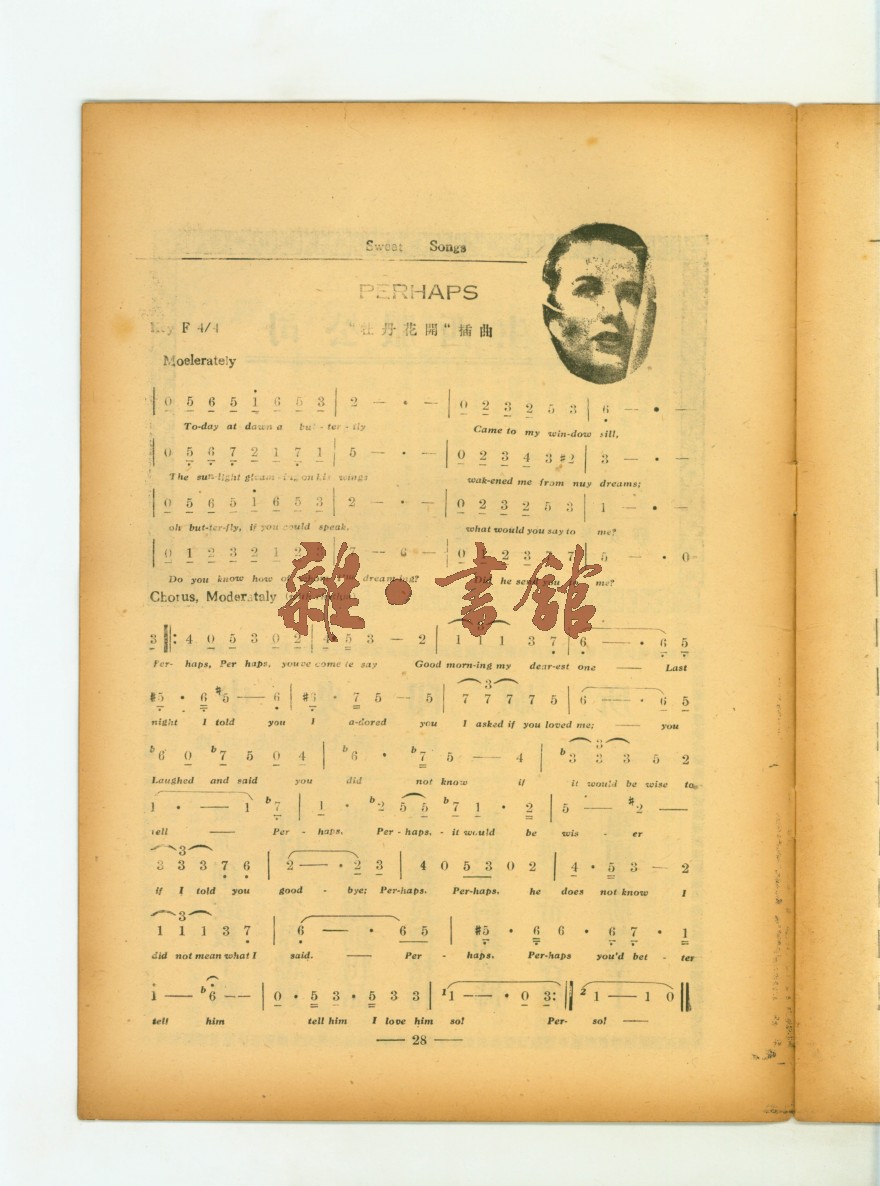 Sweet Songs
PERHAPS
Key F 4/4 "牡丹花開"插曲
Moelerately
0 5 6 5 1 6 5 3 | 2 — · — | 0 2 3 2 5 3 | 6 — · —
To-day at dawn a but-ter-fly Came to my win-dow sill,
0 5 6 7 2 1 7 1 | 5 — · — | 0 2 3 4 3 #2 | 3 — · —
The sun-light gleam-ing on his wings wak-ened me from nuy dreams;
0 5 6 5 1 6 5 3 | 2 — · — | 0 2 3 2 5 3 | 1 — · —
oh but-ter-fly, if you could speak, what would you say to me?
0 1 2 3 2 1 2 3 | 7 — 6 — | 0 1 2 3 7 | 5 — · 0
Do you know how of whom dream-ing? Did he send you me?
Chorus, Moderataly
雜·書舘
3 ‖: 4 0 5 3 0 2 | 4 · 5 3 — 2 | 1 1 1 3 7 | 6 — · 6 5
Per- haps, Per haps, youve come to say Good morn-ing my dear-est one — Last
#5 · 6 #5 — 6 | #3 · 7 5 — 5 | 7 7 7 7 5 | 6 — · 6 5
night I told you I a-dored you I asked if you loved me; — you
b6 0 b7 5 0 4 | b6 · b7 5 — 4 | b3 3 3 5 2
Laughed and said you did not know if it would be wise to
1 · — 1 b7 | 1 · b2 5 5 b7 1 · 2 | 5 — #2 —
tell — Per - haps. Per - haps, - it would be wis - er
3 3 3 7 6 | 2 — · 2 3 | 4 0 5 3 0 2 | 4 · 5 3 — 2
if I told you good - bye; Per-haps. Perhaps. he does not know I
1 1 1 3 7 | 6 — · 6 5 | #5 · 6 6 · 6 7 · 1
did not mean what I said. — Per - haps. Per-haps you'd bet - ter
1 — b6 — — | 0 · 5 3 · 5 3 3 | 1 1 — — · 0 3 :‖ 2 1 — 1 0 ‖
tell him tell him I love him so! Per- so! —
— 28 —